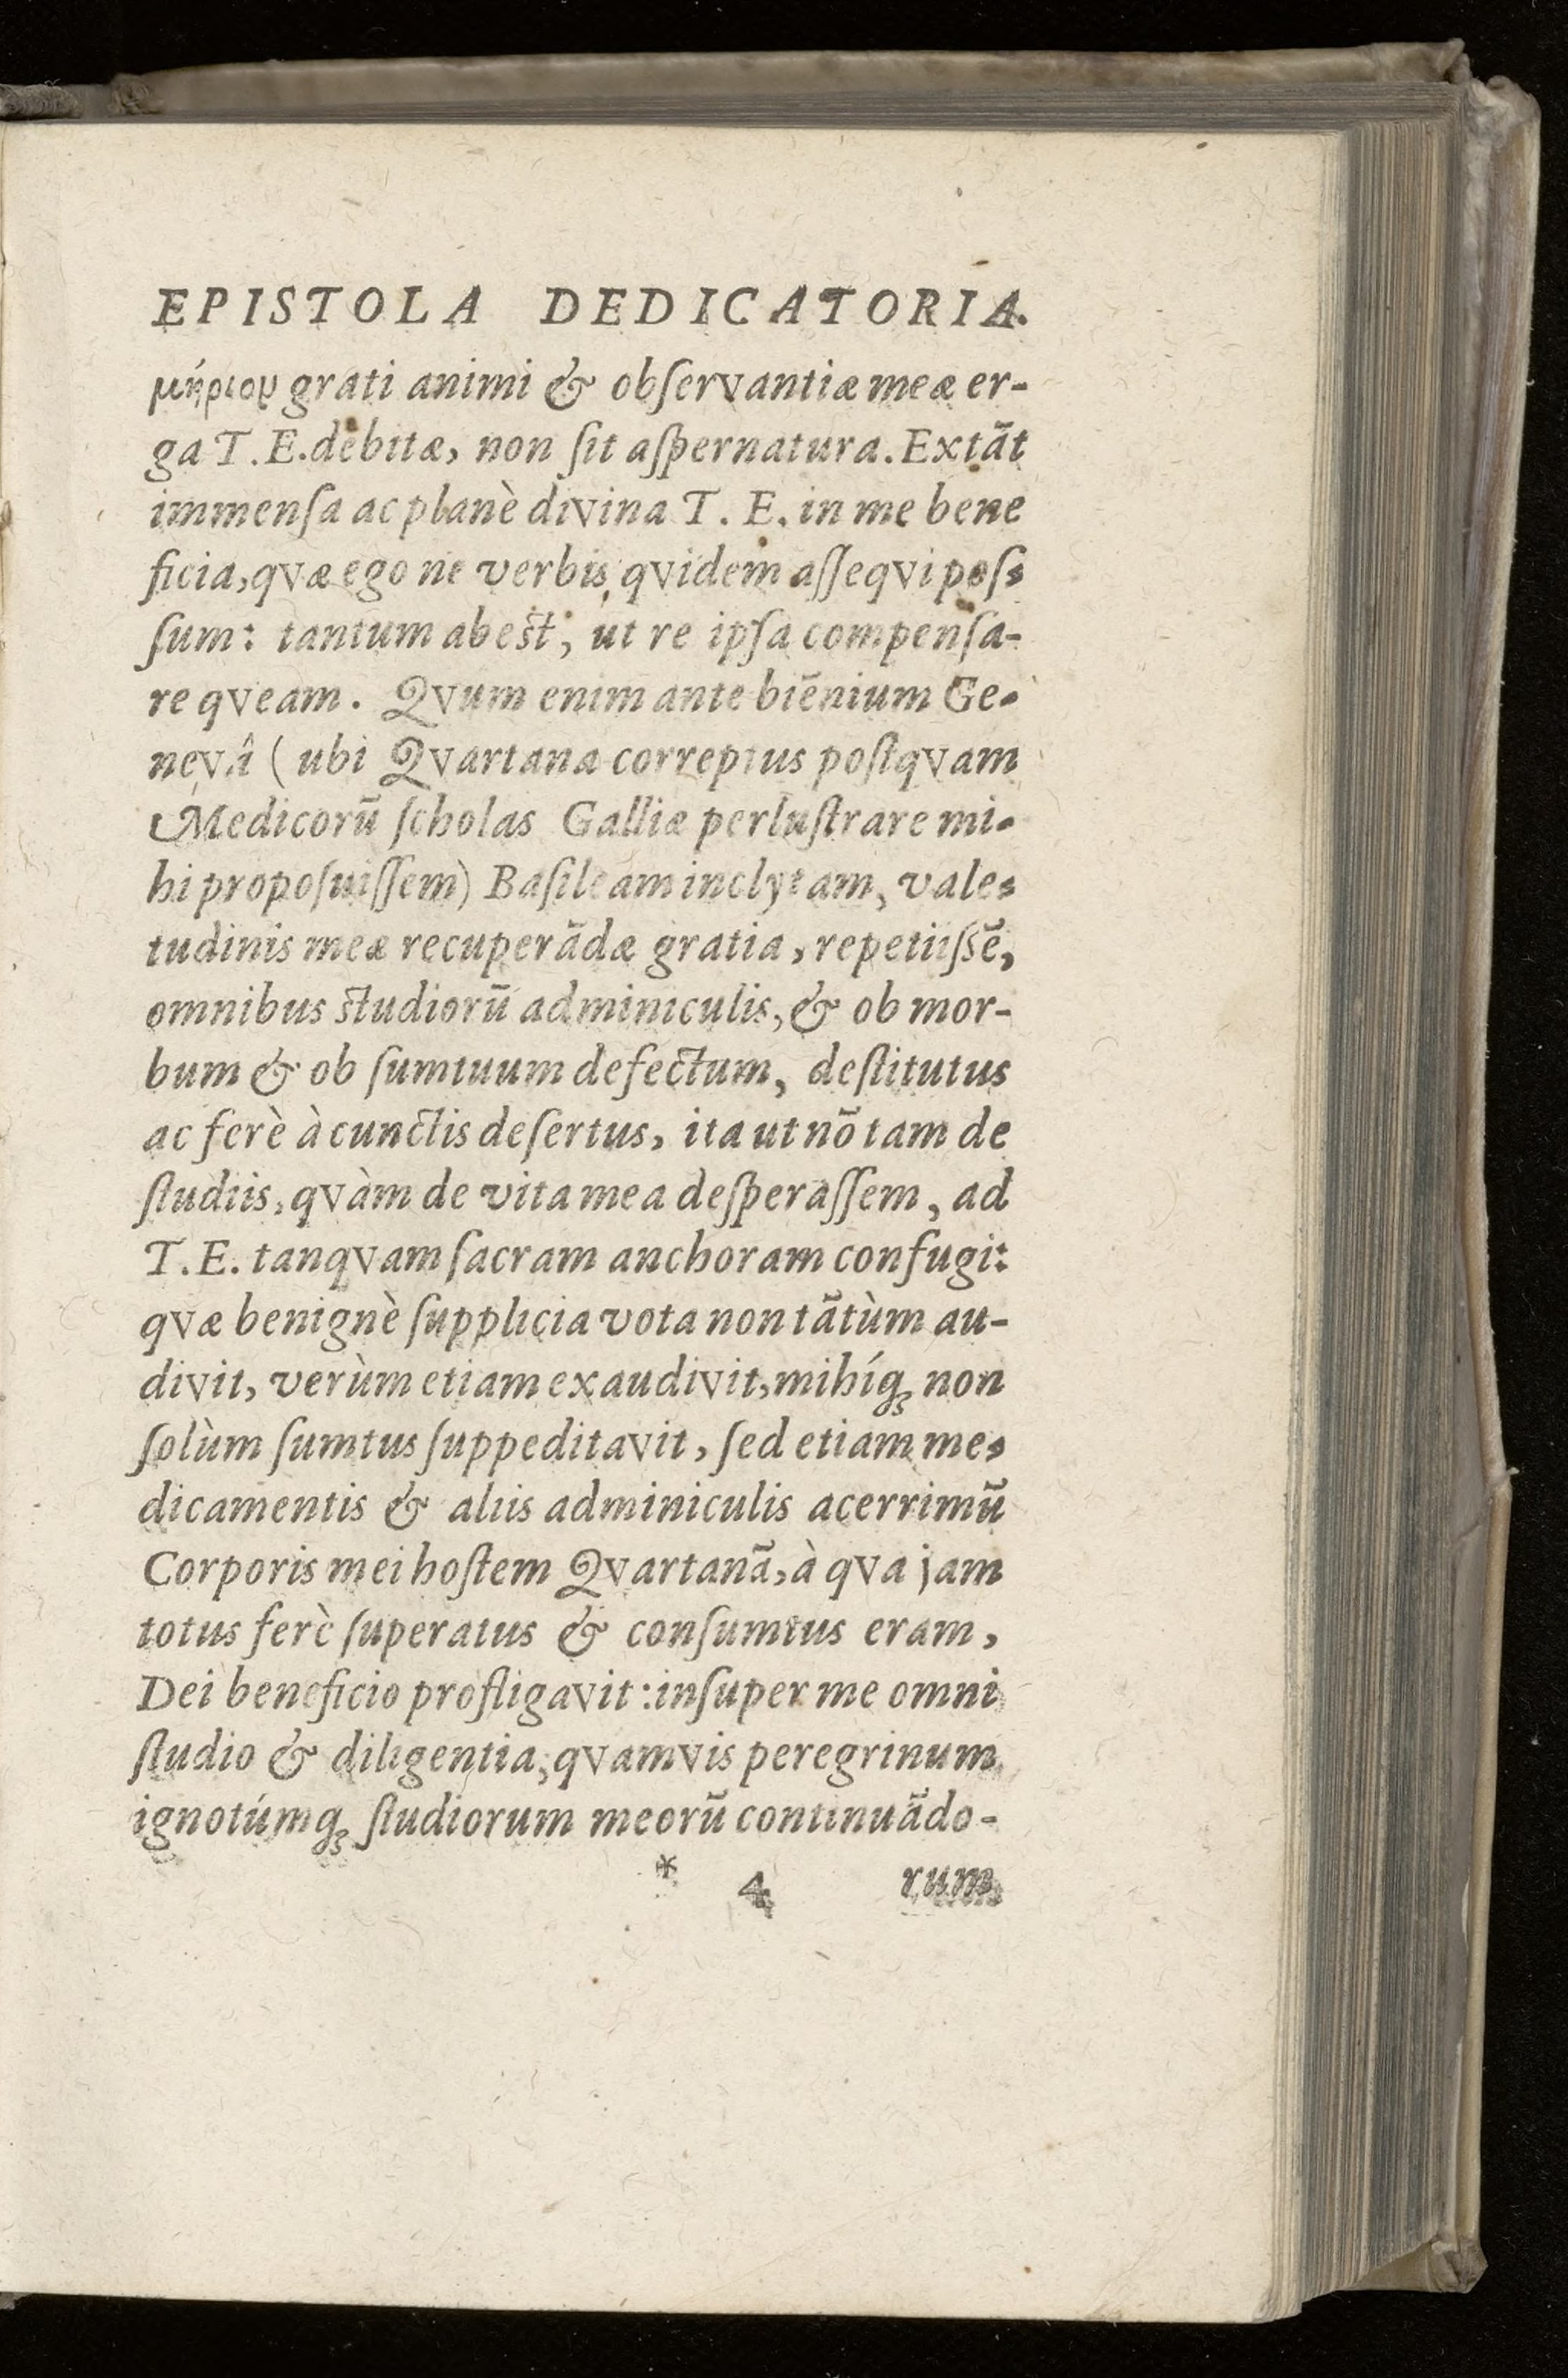 EPISTOLA DEDICATORIA.
μήριον grati animi & obſervantiæ meæ er-
ga T. E. debitæ, non ſit aſpernatura. Extāt
immenſa ac planè divina T. E. in me bene
ficia, qvæ ego ne verbis qvidem aſſeqvi poſ-
ſum: tantum abest, ut re ipſa compenſa-
re qveam. Qvum enim ante biēnium Ge-
nevâ ( ubi Qvartana correptus poſtqvam
Medicorū ſcholas Galliæ perluſtrare mi-
hi propoſuiſſem) Baſileam inclytam, vale-
tudinis meæ recuperādæ gratia, repetiiſsē,
omnibus studiorū adminiculis, & ob mor-
bum & ob ſumtuum defectum, deſtitutus
ac ferè à cunctis deſertus, ita ut nō tam de
ſtudiis, qvàm de vita mea deſperaſſem, ad
T. E. tanqvam ſacram anchoram confugi:
qvæ benignè ſupplicia vota non tātùm au-
divit, verùm etiam exaudivit, mihíq; non
ſolùm ſumtus ſuppeditavit, ſed etiam me-
dicamentis & aliis adminiculis acerrimū
Corporis mei hoſtem Qvartanā, à qva jam
totus ferè ſuperatus & conſumtus eram,
Dei beneficio profligavit: inſuper me omni
ſtudio & diligentia, qvamvis peregrinum
ignotúmq; ſtudiorum meorū continuādo-
* 4 rum